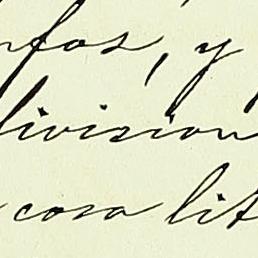 nfos, y
division
cosa lit